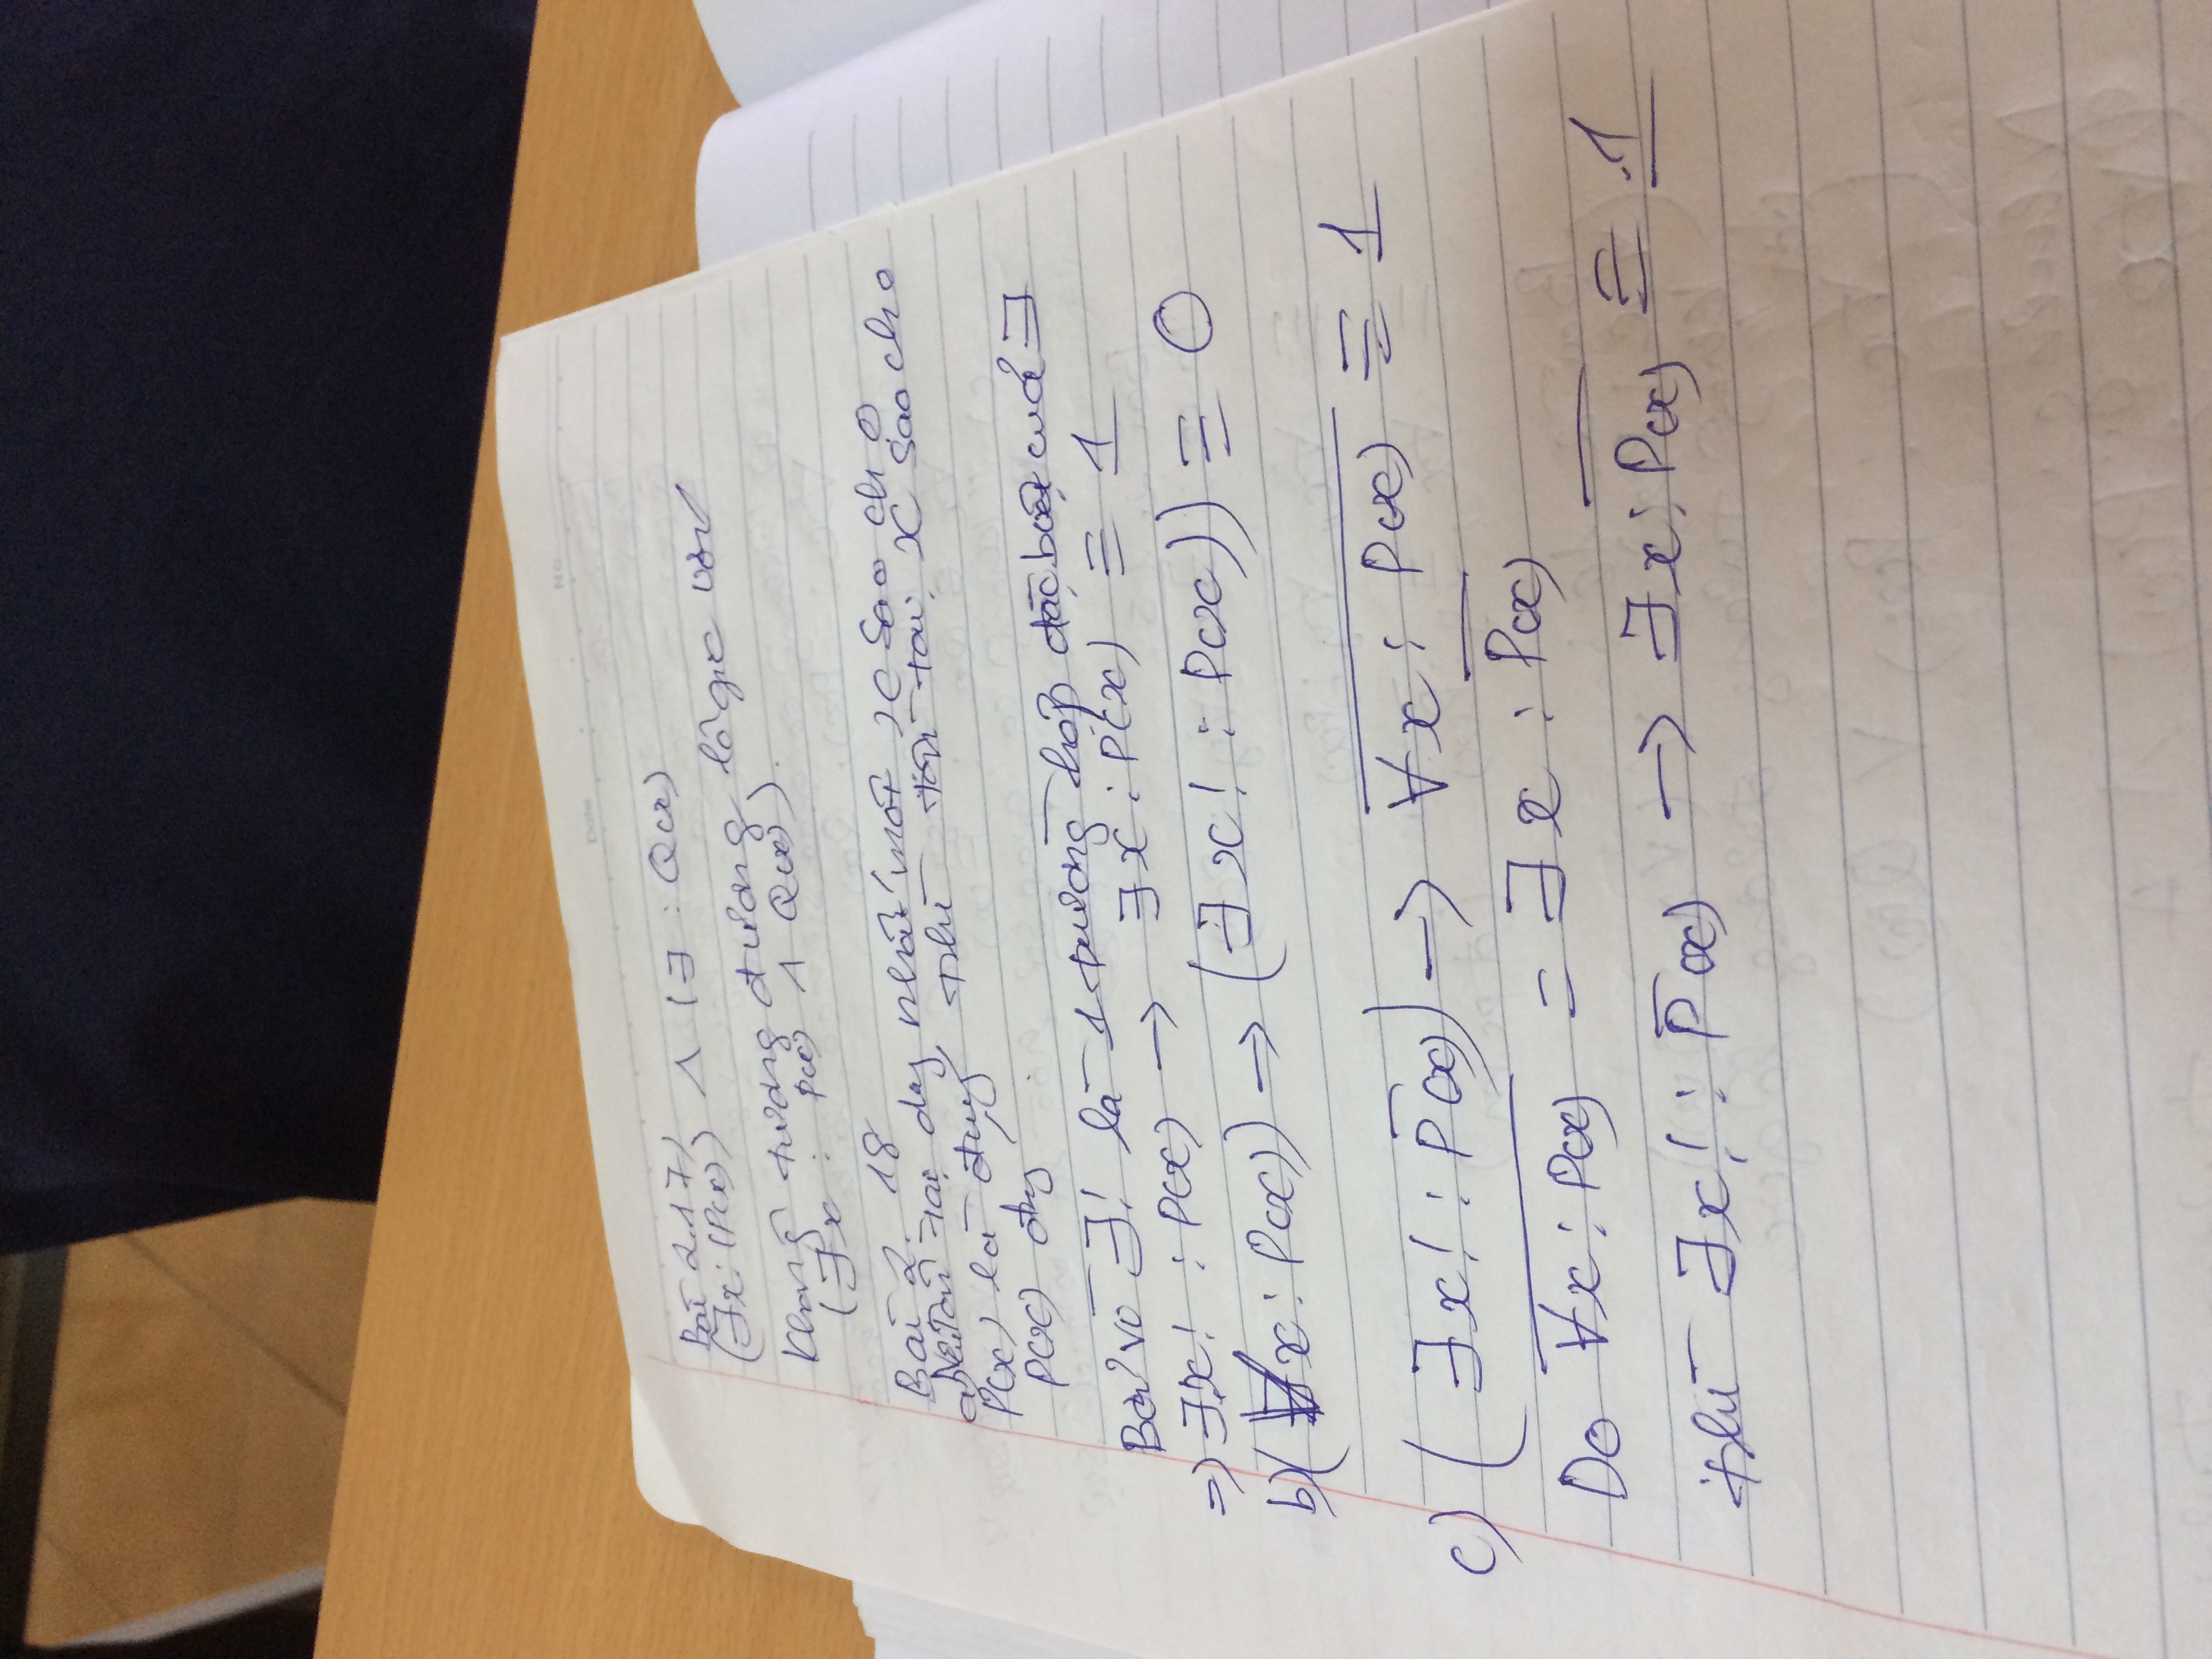 Date No
Bài 2.17)
(∃x: (P(x)) ∧ (∃ : Q(x)
Không tương đương lôgic với
(∃x : P(x) ∧ Q(x)).
Bài 2. 18
a) Nếu tồn tại duy nhất một x sao cho
P(x) là đúng thì tồn tại x sao cho
P(x) đúng
Bởi vì ∃! là 1 trường hợp đặc biệt của ∃
=> ∃x! : P(x) → ∃x : P(x) ≡ 1
b) (∀x : P(x)) → (∃x! : P(x))) ≡ 0
c) (∃x! : P̅(x)) → \overline{∀x : P(x)} ≡ 1
Do \overline{∀x : P(x)} = ∃x : \overline{P(x)}
thì ∃x! : P̅(x) → ∃x : \overline{P(x)} ≡ 1